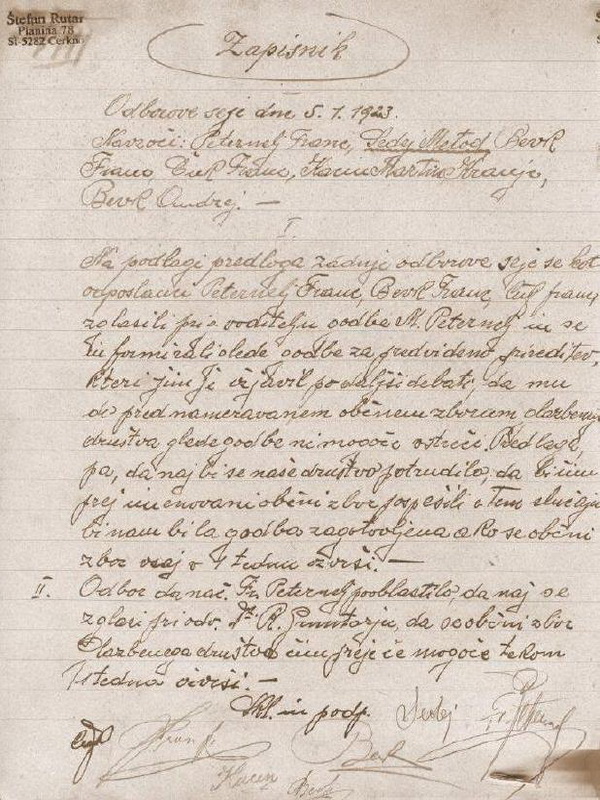 Štefan Rutar
Planina 78
SI-5282 Cerkno
Zapisnik
Odborove seje dne 5. 1. 1923.
Navzoči: Peternelj Franc, Sedej Metod, Bevk
Franc, Čuk Franc, Kacin Martin, Kranjc,
Bevk Andrej. —
I.
Na podlagi predloga zadnje odborove seje se kot
odposlanci Peternelj Franc, Bevk Franc, Čuk Franc
zglasili pri voditelju godbe M. Peternelj in se
informirali glede godbe za predvideno prireditev,
kteri jim je izjavil po daljši debati, da mu
do pred nameravanem občnem zborum glazbenega
društva glede godbe ni mogoče ustreči. Predlaga
pa, da naj bi se naše društvo potrudilo, da bi čim
prej imenovani občni zbor pospešili v tem slučaju
bi nam bila godba zagotovljena ako se občni
zbor vsaj v 1 tednu izvrši. —
II. Odbor da nač. Fr. Peternelj pooblastilo, da naj se
zglasi pri odv. Dr. R. da se občni zbor
Glazbenega društva čim preje če mogoče tekom
1 tedna izvrši. —
Skl. in podp. Sedej
Čuk Kranjc Bevk
Kacin Bevk